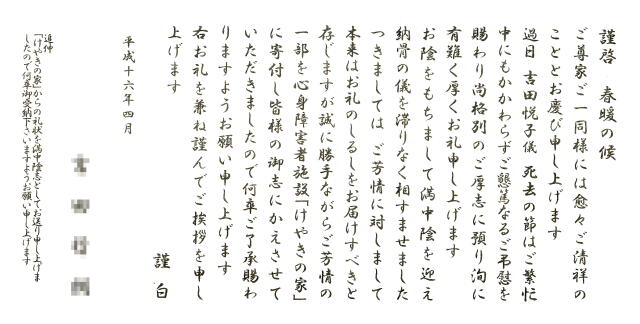 謹啓　春暖の候
ご尊家ご一同様には愈々ご清祥の
こととお慶び申し上げます
過日 吉田悦子儀 死去の節はご繁忙
中にもかかわらずご懇篤なるご弔慰を
賜わり尚格別のご厚志に預り洵に
有難く厚くお礼申し上げます
お陰をもちまして満中陰を迎え
納骨の儀を滞りなく相すませました
つきましては ご芳情に対しまして
本来はお礼のしるしをお届けすべきと
存じますが誠に勝手ながらご芳情の
一部を心身障害者施設「けやきの家」
に寄付し皆様の御志にかえさせて
いただきましたので何卒ご了承賜わ
りますようお願い申し上げます
右お礼を兼ね謹んでご挨拶を申し
上げます
謹白
平成十六年四月
追伸
「けやきの家」からの礼状を満中陰志としてお送り申し上げま
したので何卒御受納下さいますようお願い申し上げます